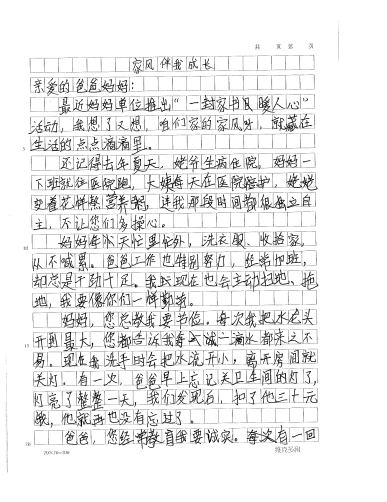 共 页 第 页
家风伴我成长
亲爱的爸爸妈妈：
最近妈妈单位推出“一封家书 暖人心”
活动，我想了又想，咱们家的家风呀，就藏在
生活的点点滴滴里。
还记得去年夏天，姥爷生病住院，妈妈一
下班就往医院跑，大姨每天在医院陪护，姥姥
变着花样做营养餐，连我那段时间都很独立自
主，不让您们多操心。
妈妈每天忙里忙外，洗衣服、收拾家，
从不喊累。爸爸工作也特别努力，经常加班，
却总是干劲十足。我现在也会主动扫地、拖
地，我要像你们一样勤劳。
妈妈，您总教我要节俭。每次我把水龙头
开到最大，您都告诉我每一滴水都来之不
易。现在我洗手时会把水流开小，离开房间就
关灯。有一次，爸爸早上忘记关卫生间的灯了，
灯亮了整整一天，我们发现后，扣了他三十元
钱，他就再也没有忘过了。
爸爸，您经常教育我要诚实。每次有一回
20×20=400